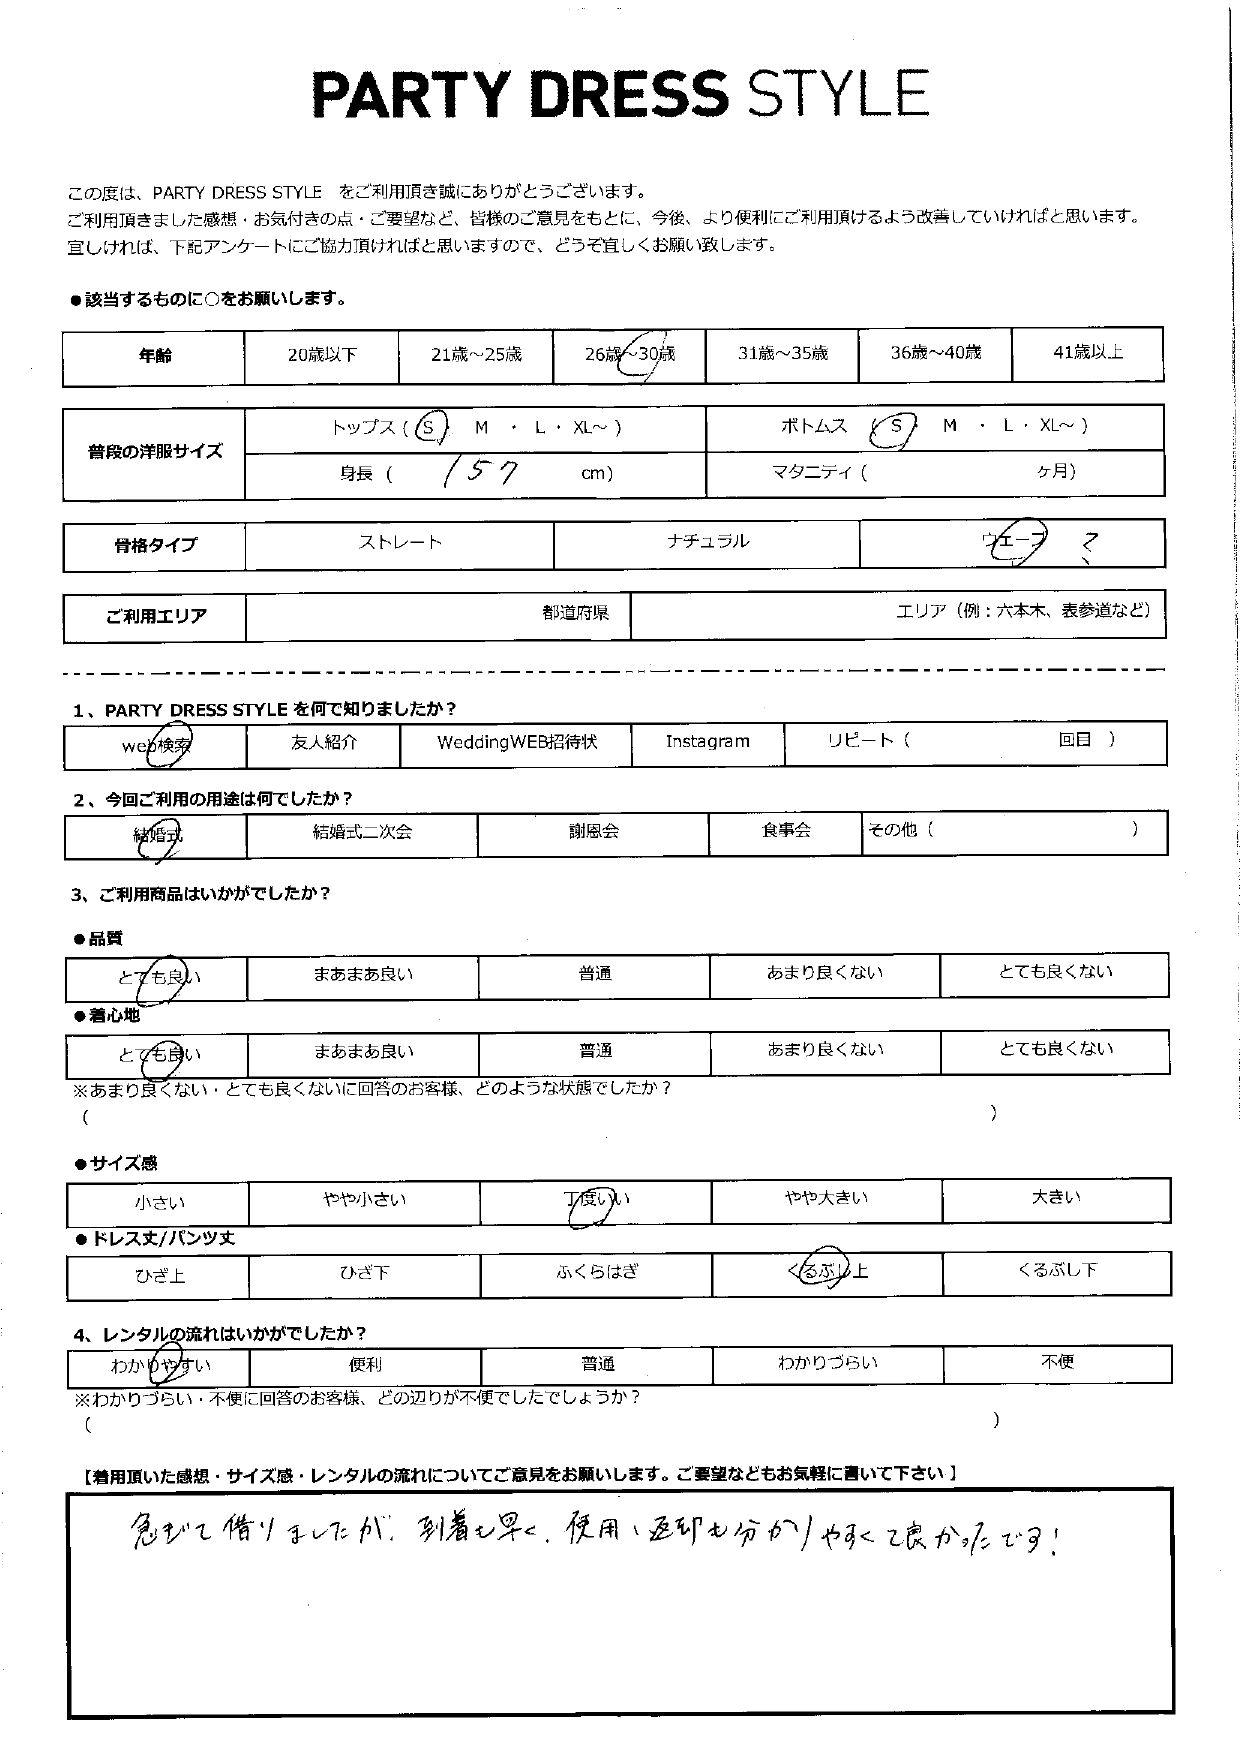 PARTY DRESS STYLE
この度は、PARTY DRESS STYLE をご利用頂き誠にありがとうございます。
ご利用頂きました感想・お気付きの点・ご要望など、皆様のご意見をもとに、今後、より便利にご利用頂けるよう改善していければと思います。
宜しければ、下記アンケートにご協力頂ければと思いますので、どうぞ宜しくお願い致します。
●該当するものに○をお願いします。
年齢 20歳以下 21歳～25歳 26歳～30歳 31歳～35歳 36歳～40歳 41歳以上
普段の洋服サイズ
トップス ( S ・ M ・ L ・ XL～ ) ボトムス ( S ・ M ・ L ・ XL～ )
身長 ( 157 cm) マタニティ ( ヶ月)
骨格タイプ ストレート ナチュラル ウェーブ ?
ご利用エリア 都道府県 エリア（例：六本木、表参道など）
1、PARTY DRESS STYLE を何で知りましたか？
web検索 友人紹介 WeddingWEB招待状 Instagram リピート ( 回目 )
2、今回ご利用の用途は何でしたか？
結婚式 結婚式二次会 謝恩会 食事会 その他 ( )
3、ご利用商品はいかがでしたか？
●品質
とても良い まあまあ良い 普通 あまり良くない とても良くない
●着心地
とても良い まあまあ良い 普通 あまり良くない とても良くない
※あまり良くない・とても良くないに回答のお客様、どのような状態でしたか？
( )
●サイズ感
小さい やや小さい 丁度いい やや大きい 大きい
●ドレス丈/パンツ丈
ひざ上 ひざ下 ふくらはぎ くるぶし上 くるぶし下
4、レンタルの流れはいかがでしたか？
わかりやすい 便利 普通 わかりづらい 不便
※わかりづらい・不便に回答のお客様、どの辺りが不便でしたでしょうか？
( )
【着用頂いた感想・サイズ感・レンタルの流れについてご意見をお願いします。ご要望などもお気軽に書いて下さい 】
急ぎで借りましたが、到着も早く、使用、返却も分かりやすくて良かったです!